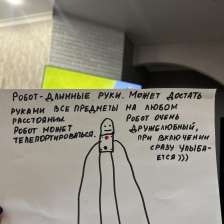 РОБОТ-ДЛИННЫЕ РУКИ. МОЖЕТ ДОСТАТЬ
РУКАМИ ВСЕ ПРЕДМЕТЫ НА ЛЮБОМ
РАССТОЯНИИ.
РОБОТ МОЖЕТ
ТЕЛЕПОРТИРОВАТЬСЯ.
РОБОТ ОЧЕНЬ
ДРУЖЕЛЮБНЫЙ,
ПРИ ВКЛЮЧЕНИИ
СРАЗУ УЛЫБА-
ЕТСЯ )))